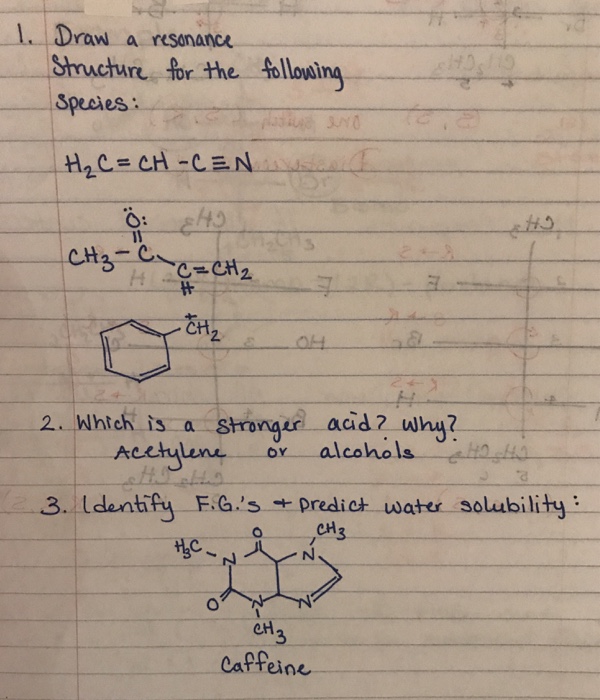 1. Draw a resonance
Structure for the following
Species:
H₂C=CH-C≡N
:Ö:
CH₃-C
C=CH₂
H
+CH₂
2. Which is a stronger acid? Why?
Acetylene or alcohols
3. Identify F.G.'s + predict water solubility:
O
CH₃
H₃C-N
N
O
N
N
CH₃
Caffeine